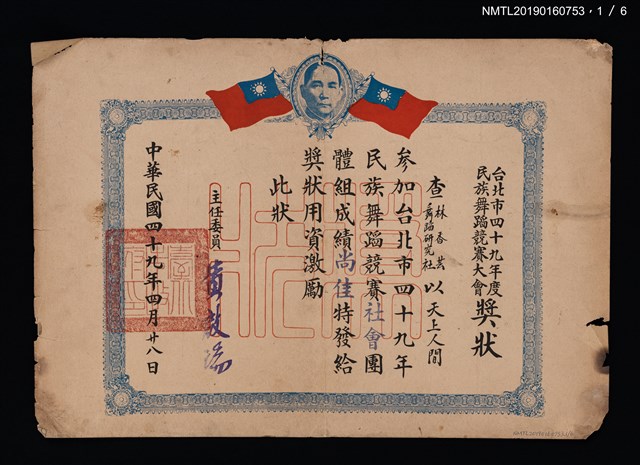 NMTL20190160753，1 / 6
台北市四十九年度
民族舞蹈競賽大會
獎狀
查
林香芸
舞蹈研究社
以
天上人間
參加台北市四十九年
民族舞蹈競賽社會團
體組成績尚佳特發給
獎狀用資激勵
此狀
主任委員
黃啟瑞
中華民國四十九年四月廿八日